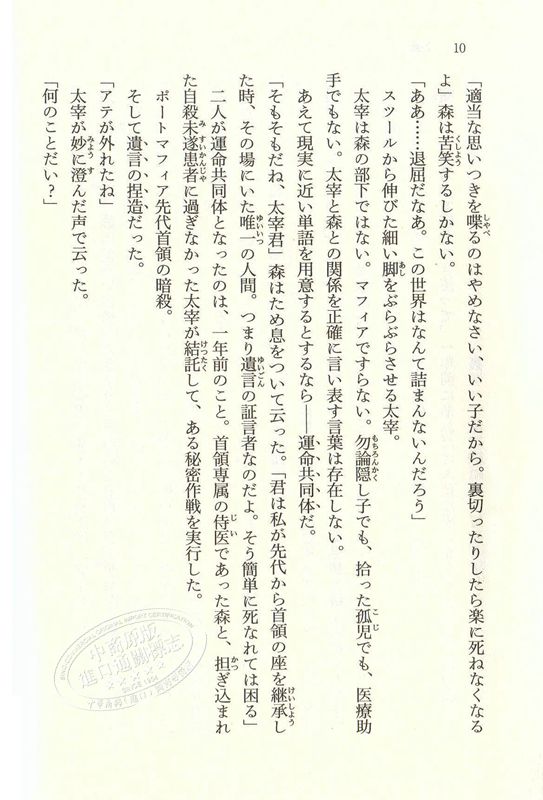 10
「適当な思いつきを喋るのはやめなさい、いい子だから。裏切ったりしたら楽に死ねなくなる
よ」森は苦笑するしかない。
「ああ……退屈だなあ。この世界はなんて詰まんないんだろう」
スツールから伸びた細い脚をぶらぶらさせる太宰。
太宰は森の部下ではない。マフィアですらない。勿論隠し子でも、拾った孤児でも、医療助
手でもない。太宰と森との関係を正確に言い表す言葉は存在しない。
あえて現実に近い単語を用意するとするなら――運命共同体だ。
「そもそもだね、太宰君」森はため息をついて云った。「君は私が先代から首領の座を継承し
た時、その場にいた唯一の人間。つまり遺言の証言者なのだよ。そう簡単に死なれては困る」
二人が運命共同体となったのは、一年前のこと。首領専属の侍医であった森と、担ぎ込まれ
た自殺未遂患者に過ぎなかった太宰が結託して、ある秘密作戦を実行した。
ポートマフィア先代首領の暗殺。
そして遺言の捏造だった。
「アテが外れたね」
太宰が妙に澄んだ声で云った。
「何のことだい？」